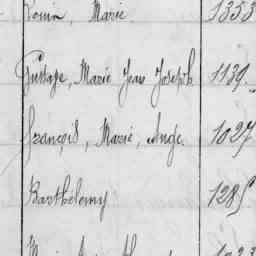 Marie 1353
Gustave, Marie Jean Joseph 1139
François, Marie, Ange. 1027
Barthélemy 1285